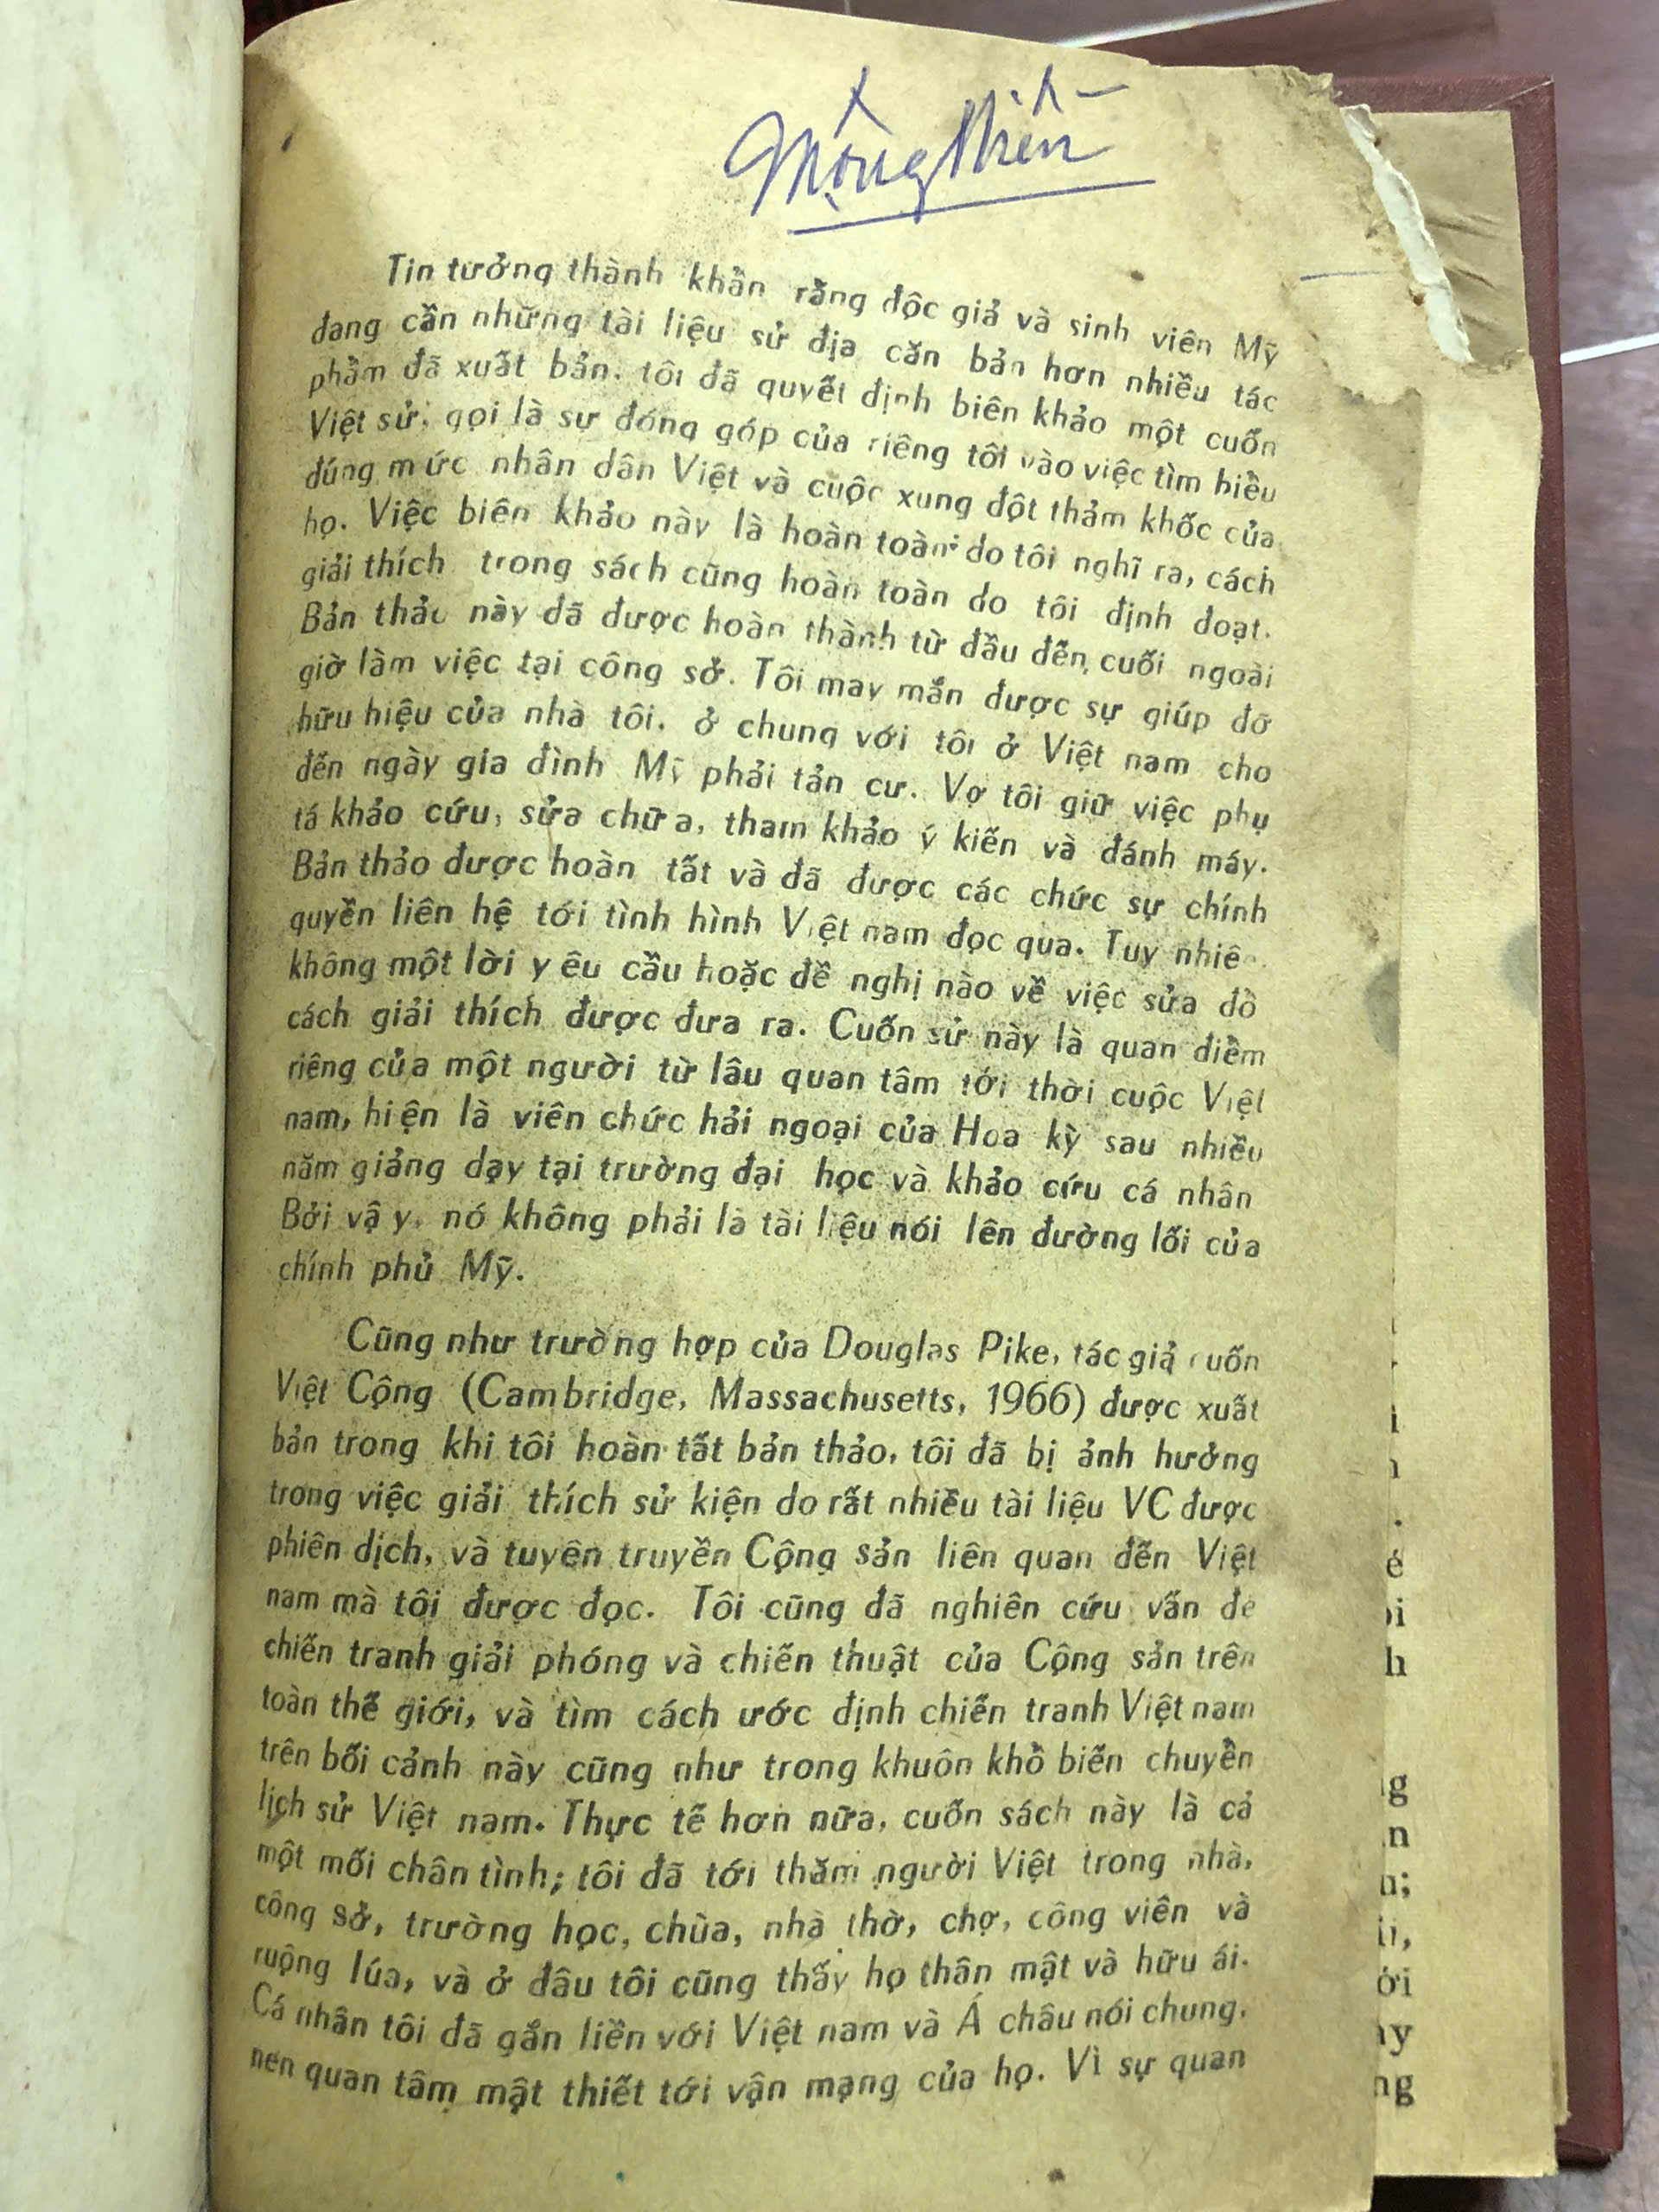 Tin tưởng thành khẩn rằng độc giả và sinh viên Mỹ
đang cần những tài liệu sử địa căn bản hơn nhiều tác
phẩm đã xuất bản, tôi đã quyết định biên khảo một cuốn
Việt sử, gọi là sự đóng góp của riêng tôi vào việc tìm hiểu
đúng mức nhân dân Việt và cuộc xung đột thảm khốc của
họ. Việc biên khảo này là hoàn toàn do tôi nghĩ ra, cách
giải thích trong sách cũng hoàn toàn do tôi định đoạt.
Bản thảo này đã được hoàn thành từ đầu đến cuối ngoài
giờ làm việc tại công sở. Tôi may mắn được sự giúp đỡ
hữu hiệu của nhà tôi, ở chung với tôi ở Việt nam cho
đến ngày gia đình Mỹ phải tản cư. Vợ tôi giữ việc phụ
tá khảo cứu, sửa chữa, tham khảo ý kiến và đánh máy.
Bản thảo được hoàn tất và đã được các chức sự chính
quyền liên hệ tới tình hình Việt nam đọc qua. Tuy nhiê
không một lời yêu cầu hoặc đề nghị nào về việc sửa đổ
cách giải thích được đưa ra. Cuốn sử này là quan điểm
riêng của một người từ lâu quan tâm tới thời cuộc Việt
nam, hiện là viên chức hải ngoại của Hoa kỳ sau nhiều
năm giảng dạy tại trường đại học và khảo cứu cá nhân
Bởi vậy, nó không phải là tài liệu nói lên đường lối của
chính phủ Mỹ.
Cũng như trường hợp của Douglas Pike, tác giả cuốn
Việt Cộng (Cambridge, Massachusetts, 1966) được xuất
bản trong khi tôi hoàn tất bản thảo, tôi đã bị ảnh hưởng
trong việc giải thích sử kiện do rất nhiều tài liệu VC được
phiên dịch, và tuyên truyền Cộng sản liên quan đến Việt
nam mà tôi được đọc. Tôi cũng đã nghiên cứu vấn đề
chiến tranh giải phóng và chiến thuật của Cộng sản trên
toàn thế giới, và tìm cách ước định chiến tranh Việt nam
trên bối cảnh này cũng như trong khuôn khổ biến chuyển
lịch sử Việt nam. Thực tế hơn nữa, cuốn sách này là cả
một mối chân tình; tôi đã tới thăm người Việt trong nhà,
công sở, trường học, chùa, nhà thờ, chợ, công viên và
ruộng lúa, và ở đâu tôi cũng thấy họ thân mật và hữu ái.
Cá nhân tôi đã gắn liền với Việt nam và Á châu nói chung,
nên quan tâm mật thiết tới vận mạng của họ. Vì sự quan